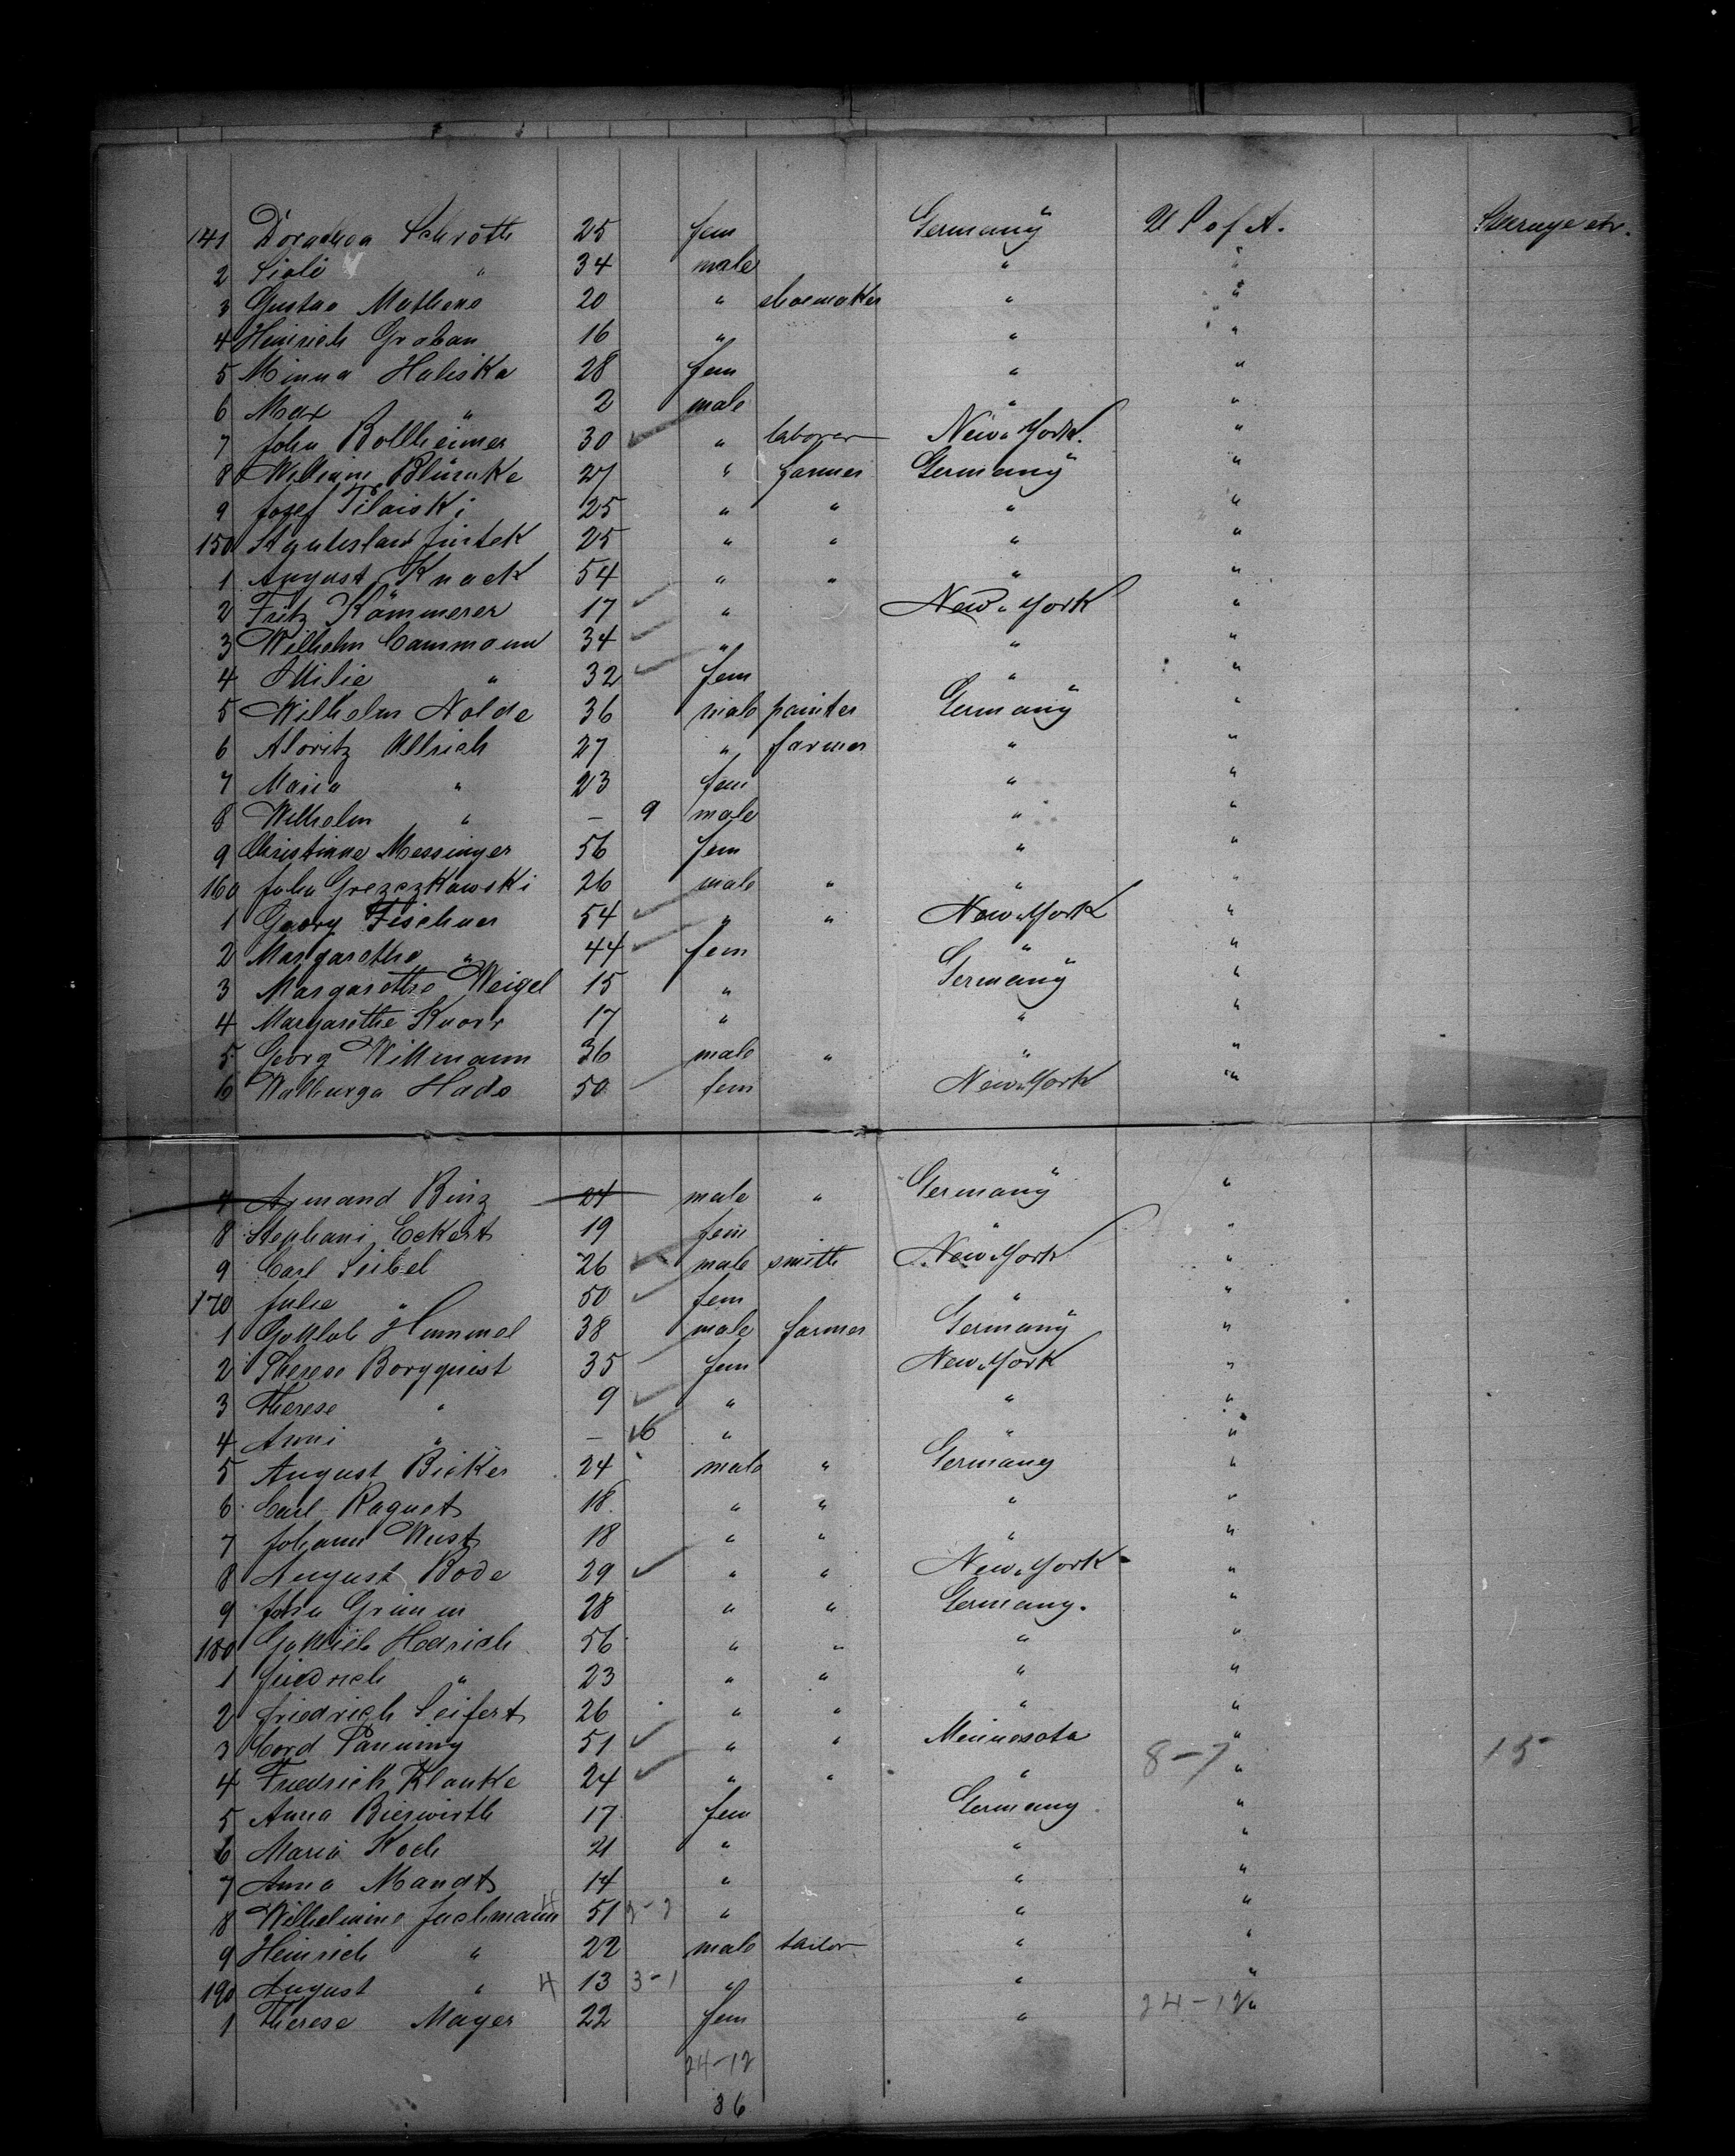 141 Dorathea Schröth 25 fem Germany U S of A. Steerage etr.
2 " 34 male " "
3 Gustav Mathene 20 " shoemaker " "
4 Heinrich Groban 16 " " "
5 Minna Haliska 28 fem " "
6 Max " 2 male " "
7 John Bollheimer 30 " laborer New York. "
8 William Blümke 27 " farmer Germany "
9 Josef Pilaiski 25 " " " "
150 25 " " " "
1 August Knack 54 " " " "
2 Fritz Kämmerer 17 " New York "
3 Wilhelm Cammann 34 " " "
4 " 32 fem " "
5 Wilhelm Nolde 36 male painter Germany "
6 Moritz Ullrich 27 " farmer " "
7 Maria " 23 fem " "
8 Wilhelm " – 9 male " "
9 Christinne Messinger 56 fem " "
160 John Grezezkawski 26 male " " "
1 Georg Fischner 54 " " New York "
2 Margarethe " 44 fem " "
3 Margarethe Weigel 15 " Germany "
4 Margarethe Knorr 17 " " "
5 Georg Wittmann 36 male " " "
6 Walburga Hads 50 fem New York "
7 Armand Binz 24 male " Germany "
8 Stephani Eckert 19 fem " "
9 Carl Seibel 26 male smith New York "
170 Julie " 50 fem " "
1 Gottlob Hummel 38 male farmer Germany "
2 Therese Borgquist 35 fem New York "
3 Therese " 9 " " "
4 Anni " – 6 " " "
5 August Bicker 24 male " Germany "
6 Carl Raquet 18 " " " "
7 Johann Wust 18 " " " "
8 August Bode 29 " " New York "
9 John Grimm 28 " " Germany. "
180 Gottlieb Hedrich 56 " " " "
1 Friedrich " 23 " " " "
2 Friedrich Seifert 26 " " " "
3 Cord Panning 51 " " Minnesota "
4 Friedrich Klauke 24 " " " 8-7 " 15
5 Anna Bierwirth 17 fem Germany "
6 Maria Koch 21 " " "
7 Anna Mandt 14 " " "
8 Wilhelmine Juchmann 4 51 " " "
9 Heinrich " 22 male tailor " "
190 August " 4 13 3-1 " " "
1 Therese Mayer 22 fem " 24-12 "
24-12
36